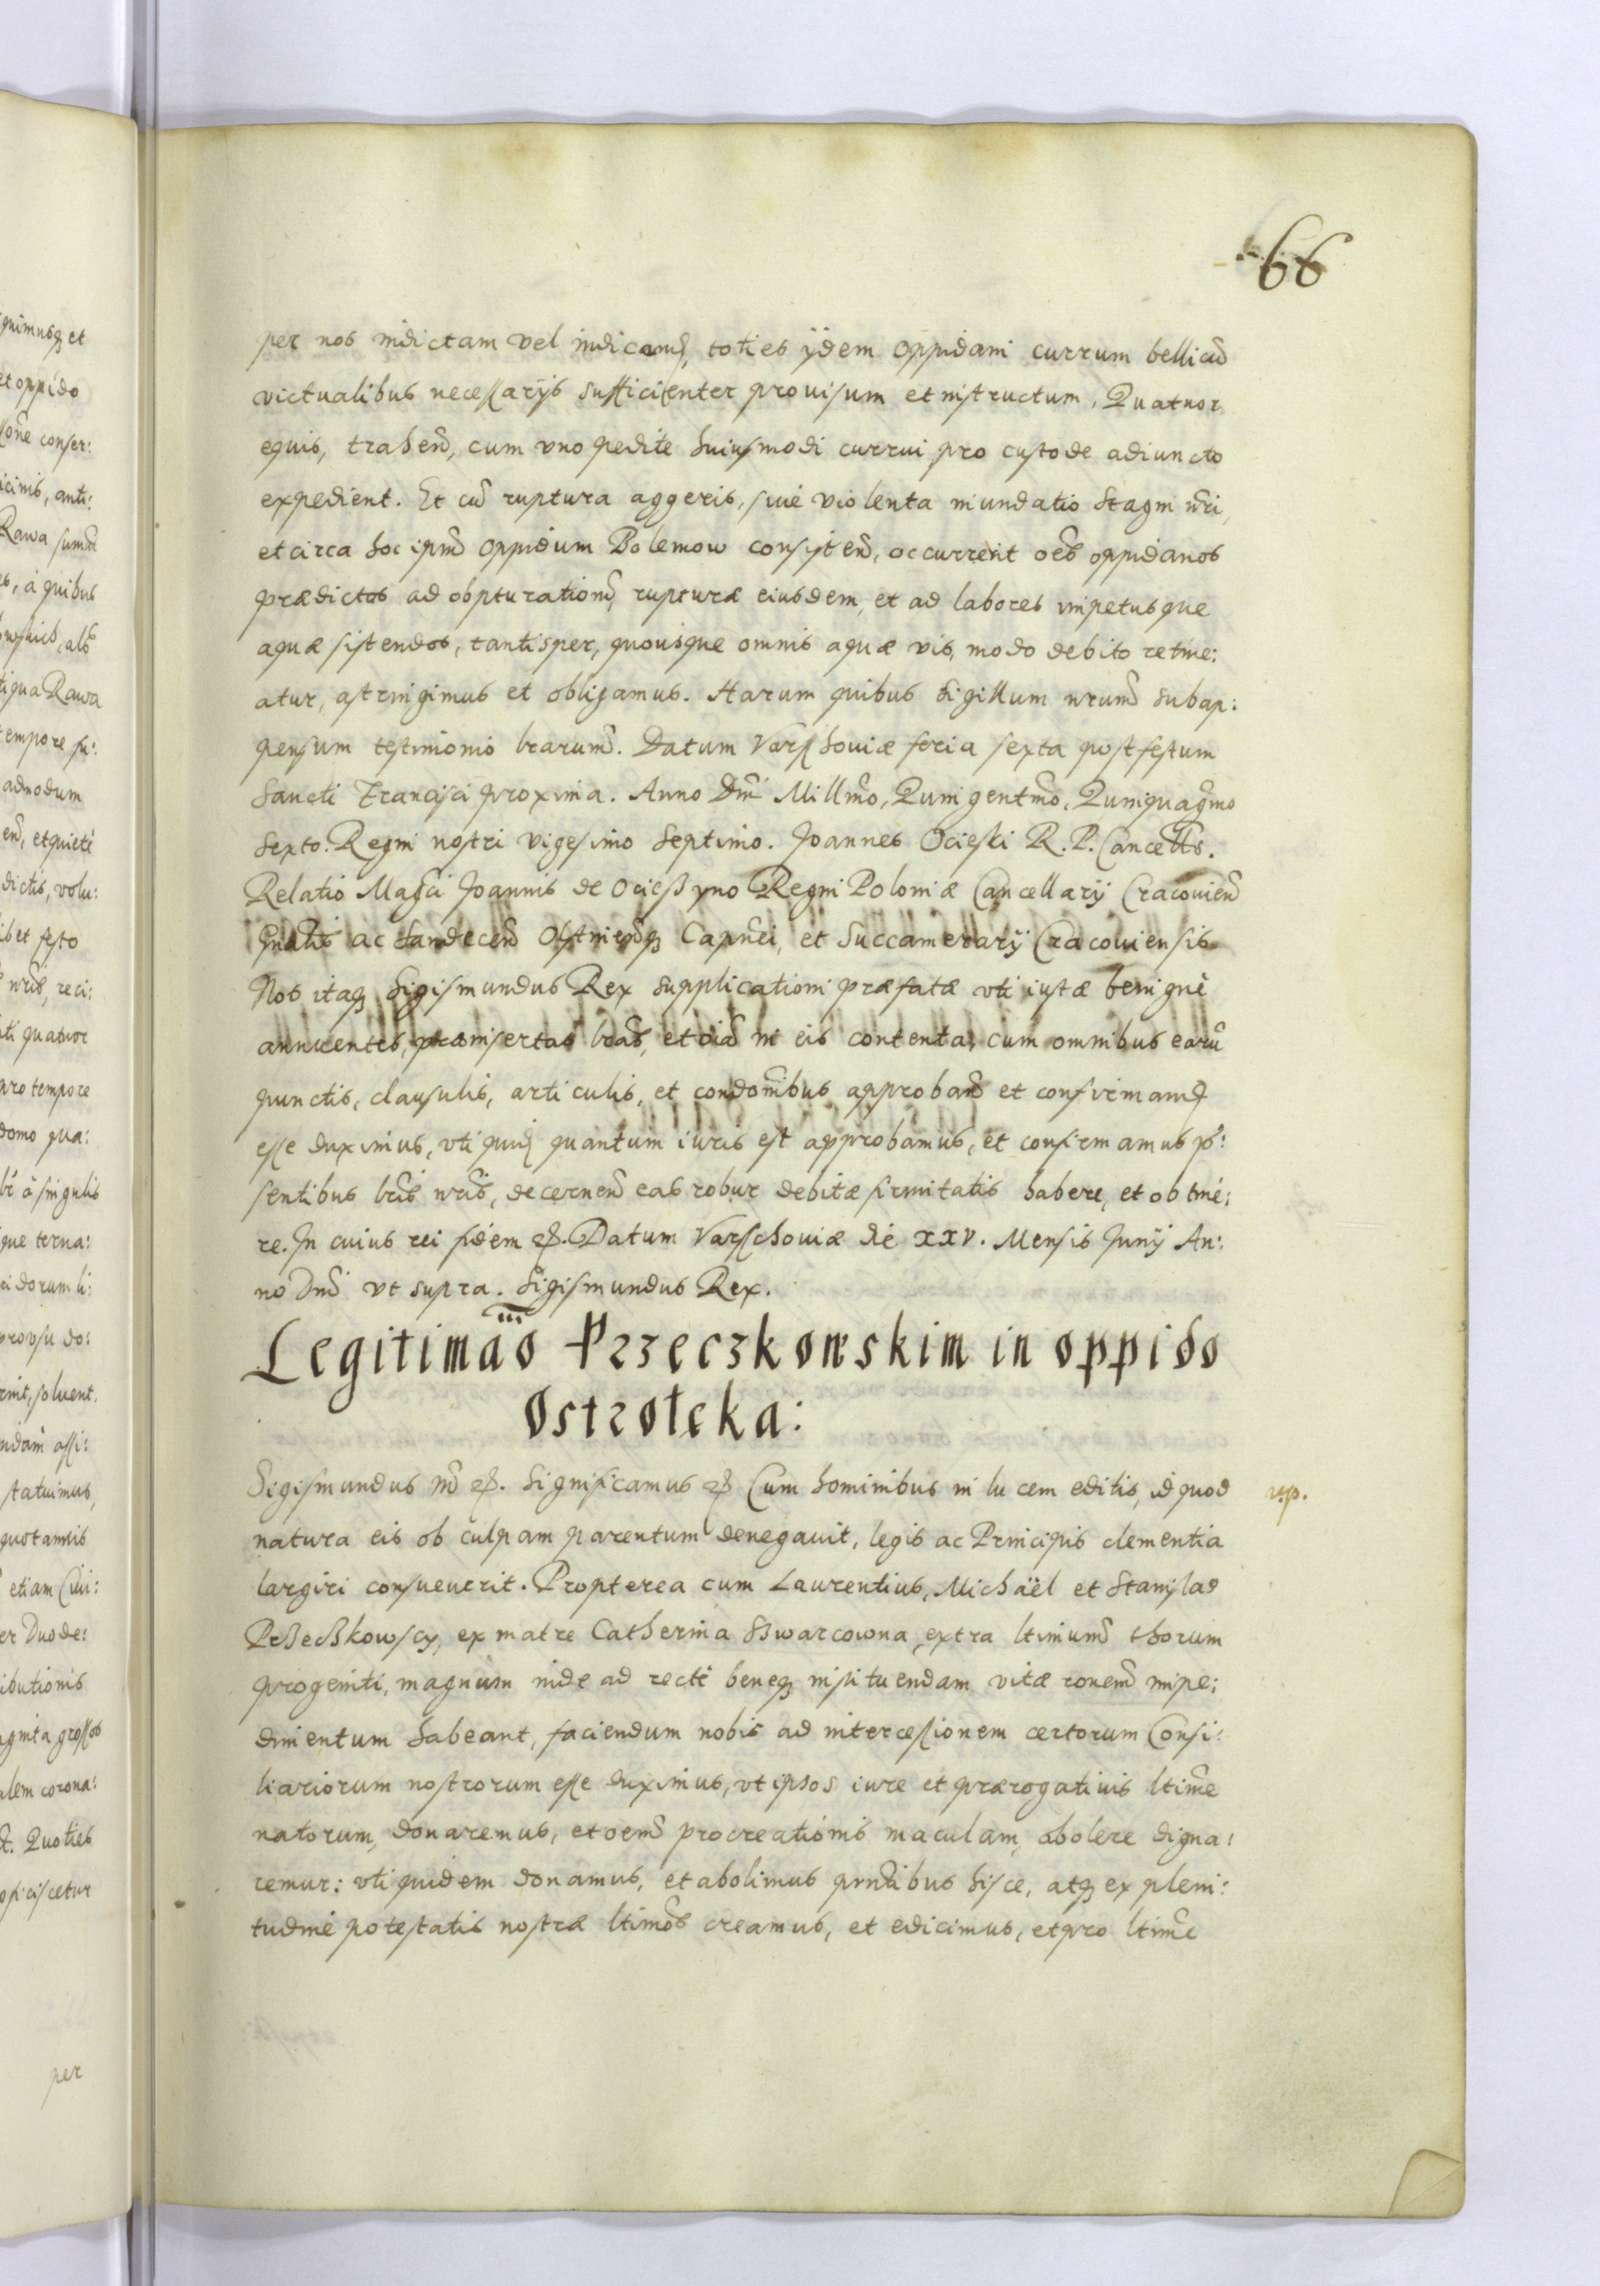 66
per nos indictam vel indicand, toties ijdem oppidani currum bellicū
victualibus necessarijs sufficienter prouisum et instructum, Quatuor
equis, trahen̄, cum vno pedite huiusmodi currui pro custode adiuncto
expedient. Et cū ruptura aggeris, siue violenta inundatio Stagni nr̄i,
et circa hoc ipm̄ oppidum Bolemow consisten̄, occurrerit oēs oppidanos
prædictos ad obpturationē, rupturæ eiusdem, et ad labores impetusque
aquæ sistendos, tantisper, quousque omnis aquæ vis, modo debito retine:
atur, astringimus et obligamus. Harum quibus Sigillum nrum̄ subap:
pensum testimonio lrarum̄. Datum Varschouiæ feria sexta post festum
Sancti Francisci proxima. Anno Dni Millmo, Quingentmo, Quinquagmo
Sexto. Regni nostri vigesimo Septimo. Joannes Ocieski R. P. Cancells.
Relatio Magci Joannis de Ocießyno Regni Poloniæ Cancellarij Cracouien̄
Gnalis ac Sandecen̄ Olstinenq Capnei, et Succamerarij Cracouiensis
Nos itaq Sigismundus Rex supplicationi præfatæ vti iustæ benignè
annuentes, præinsertas lras, et oia in eis contenta, cum omnibus earū
punctis, clausulis, articulis, et condonibus approband et confirmand
esse duximus, vti quid quantum iuris est approbamus, et confirmamus p̄:
sentibus lris nris, decernen̄ eas robur debitæ firmitatis habere, et obtine:
re. In cuius rei fidem &. Datum Varschouiæ die XXV. Mensis Junij An:
no Dni vt supra. Sigismundus Rex.
Legitimao Przeczkowskim in oppido
Ostroleka:
Sigismundus &. Significamus & Cum hominibus in lucem editis, id quod
rp.
natura eis ob culpam parentum denegauit, legis ac Principis clementia
largiri consueuerit. Propterea cum Laurentius, Michaël et Stanislaꝰ
Prßeckowscy, ex matre Catherina Swarcowna extra ltimum̄ thorum
progeniti, magnum inde ad rectè beneq instituendam vitæ ronem̄ impe:
dimentum habeant, faciendum nobis ad intercessionem certorum Consi:
liariorum nostrorum esse duximus, vt ipsos iure et prærogatiuis ltime
natorum, donaremus, et oem̄ procreationis maculam, abolere digna:
remur: vti quidem donamus, et abolimus pntibus hisce, atq ex pleni:
tudine potestatis nostræ ltimos creamus, et edicimus, et pro ltime